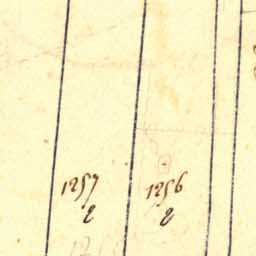 1257
2
1256
2